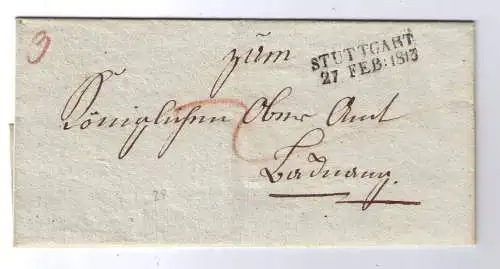 zum
STUTTGART
27 FEB: 1813
Königlichen Ober Amt
Backnang.